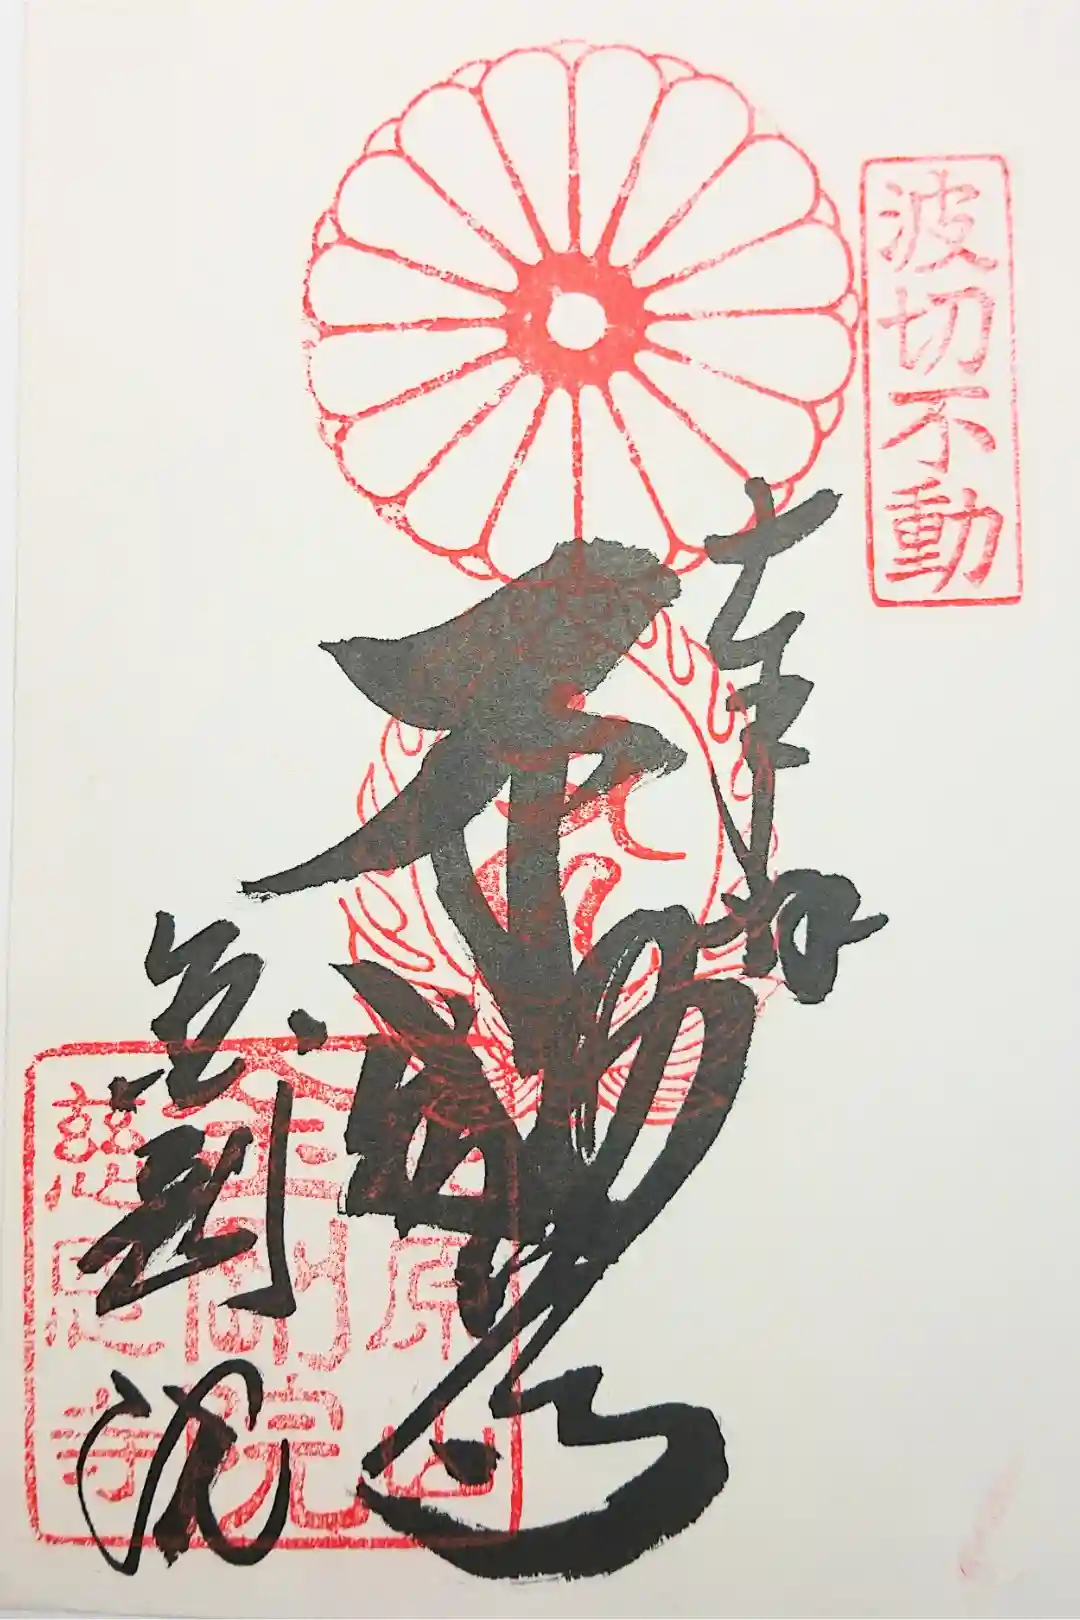 波切不動
奉拝
不動尊
金剛院
鹿原山
金剛院
慈恩寺